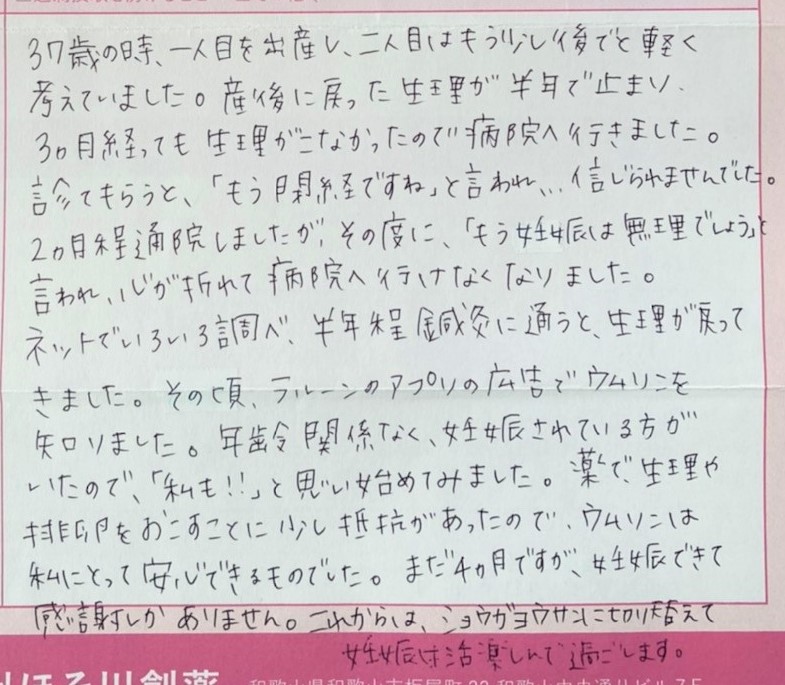 37歳の時、一人目を出産し、二人目はもう少し後でと軽く
考えていました。産後に戻った生理が半年で止まり、
3ヵ月経っても生理がこなかったので病院へ行きました。
診てもらうと、「もう閉経ですね」と言われ、、、信じられませんでした。
2ヵ月程通院しましたが、その度に、「もう妊娠は無理でしょう」と
言われ、心が折れて病院へ行けなくなりました。
ネットでいろいろ調べ、半年程鍼灸に通うと、生理が戻って
きました。その頃、ラルーンのアプリの広告でウムリンを
知りました。年齢関係なく、妊娠されている方が
いたので、「私も!!」と思い始めてみました。薬で、生理や
排卵をおこすことに少し抵抗があったので、ウムリンは
私にとって安心できるものでした。まだ4ヵ月ですが、妊娠できて
感謝しかありません。これからは、ショウガヨウサンに切り替えて
妊娠生活楽しんで過ごします。
ほそ川創薬